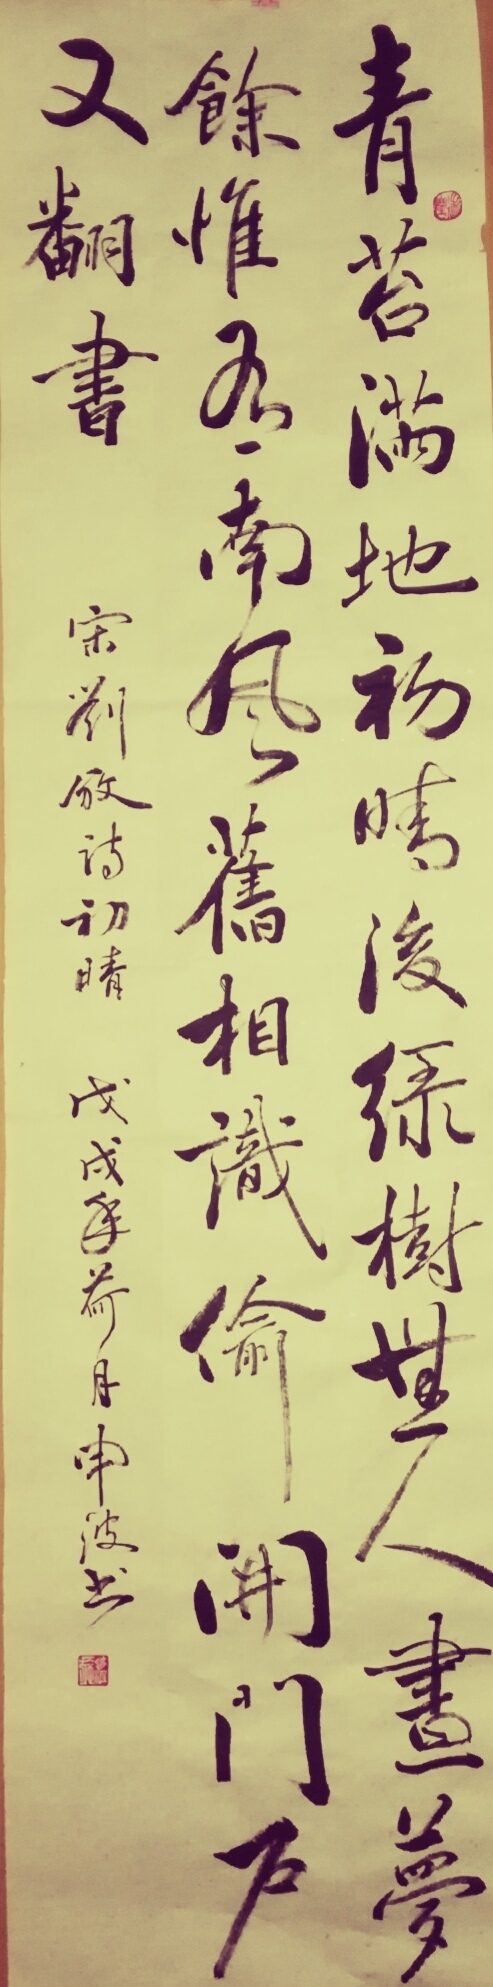 青苔滿地初晴後綠樹無人晝夢
餘惟有南風舊相識偷開門戶
又翻書
宋劉攽詩初晴 戊戌年荷月申波书